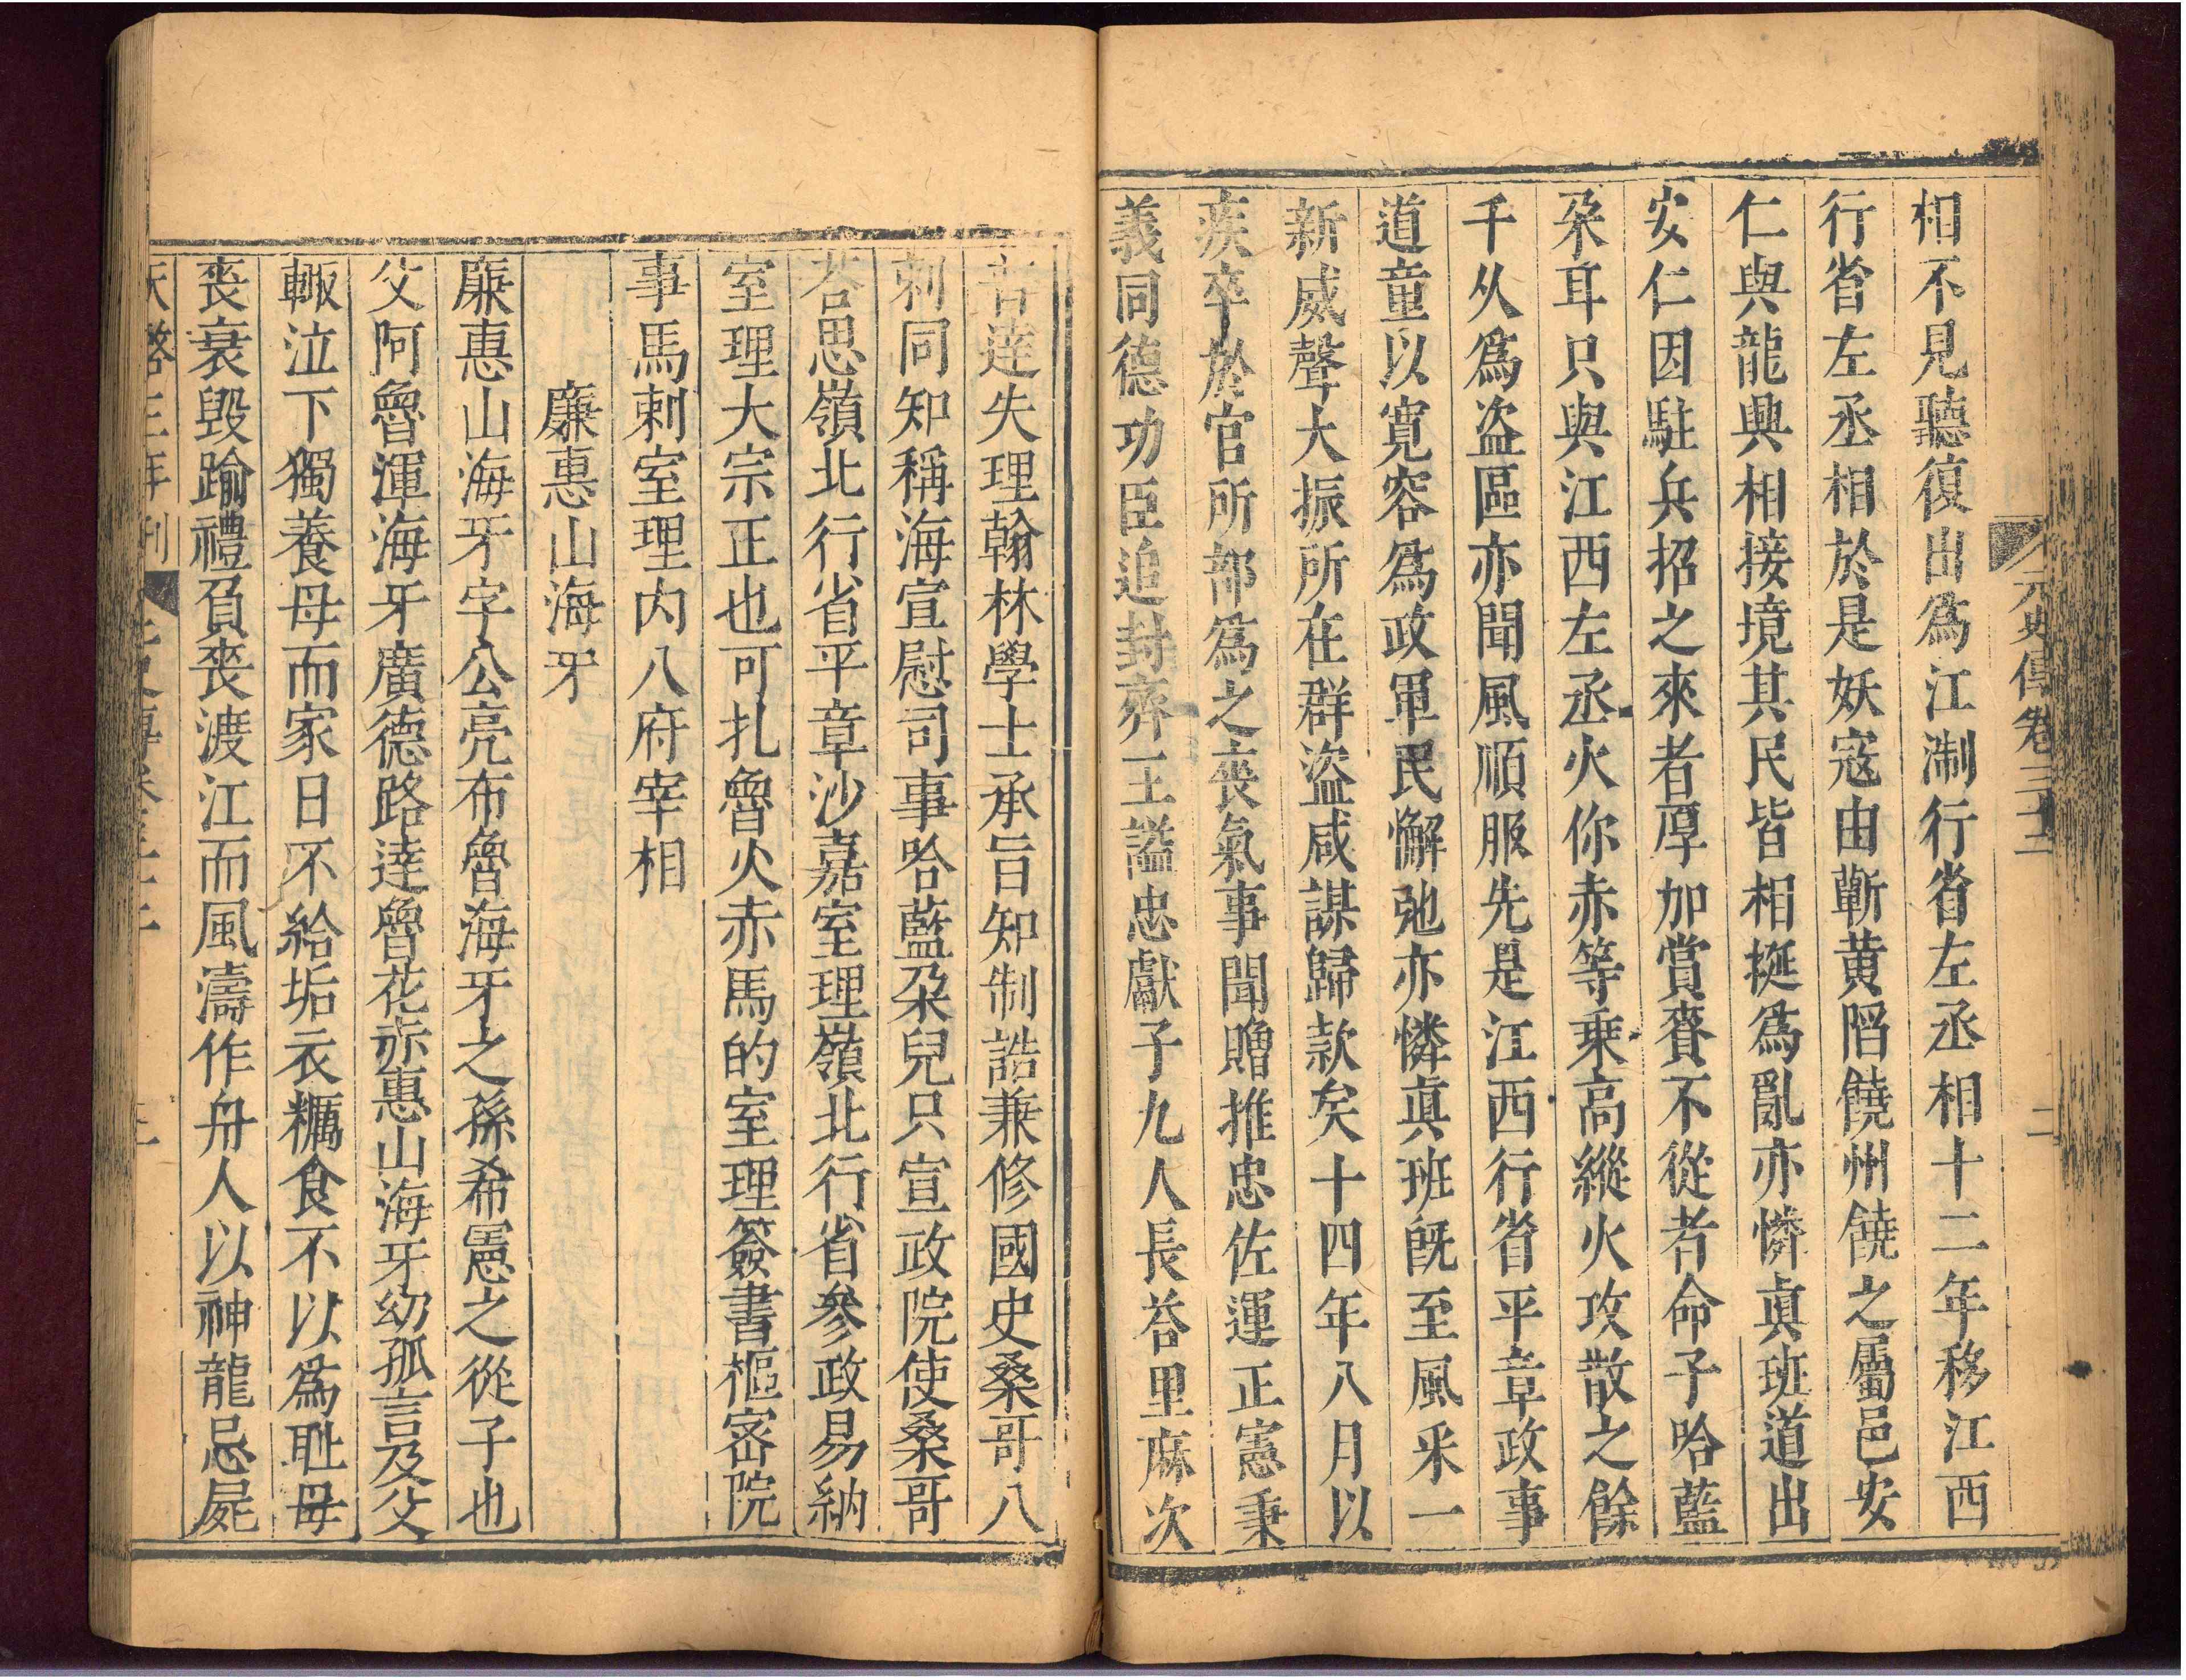 元史傳卷三十二
二
相不見聽復出爲江淛行省左丞相十二年移江西
行省左丞相於是妖寇由蘄黄陷饒州饒之屬邑安
仁與龍興相接境其民皆相挻爲亂亦憐眞班道出
安仁因駐兵招之來者厚加賞賚不從者命子哈藍
朶耳只與江西左丞火你赤等乗高縱火攻散之餘
千从爲盗區亦聞風順服先是江西行省平章政事
道童以寛容爲政軍民懈弛亦憐眞班旣至風采一
新威聲大振所在群盗咸謀歸款矣十四年八月以
疾卒於官所部爲之丧氣事聞贈推忠佐運正憲秉
義同德功臣追封齊王謚忠獻子九人長荅里麻次
普逹失理翰林學士承旨知制誥兼修國史桑哥八
剌同知稱海宣慰司事哈藍朶兒只宣政院使桑哥
荅思嶺北行省平章沙嘉室理嶺北行省參政易納
室理大宗正也可扎魯火赤馬的室理簽書樞密院
事馬剌室理内八府宰相
廉惠山海牙
廉惠山海牙字公亮布魯海牙之孫希憲之從子也
父阿魯渾海牙廣德路逹魯花赤惠山海牙幼孤言及父
輙泣下獨養母而家日不給垢衣糲食不以爲耻母
喪哀毁踰禮負喪渡江而風濤作舟人以神龍忌屍